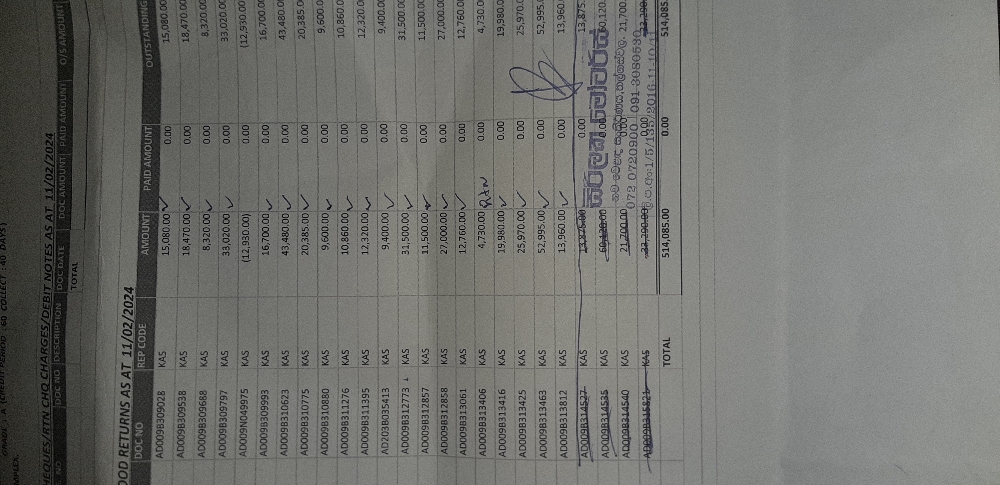 GRADE : A (CREDIT PERIOD :60 COLLECT :40 DAYS)
CHEQUES/RTN CHQ CHARGES/DEBIT NOTES AS AT 11/02/2024
NO DOC NO DESCRIPTION DOC DATE DOC AMOUNT PAID AMOUNT O/S AMOUNT
TOTAL
OOD RETURNS AS AT 11/02/2024
DOC NO REP CODE AMOUNT PAID AMOUNT OUTSTANDING
AD009B309028 KAS 15,080.00 0.00 15,080.00
AD009B309538 KAS 18,470.00 0.00 18,470.00
AD009B309688 KAS 8,320.00 0.00 8,320.00
AD009B309797 KAS 33,020.00 0.00 33,020.00
AD009N049975 KAS (12,930.00) 0.00 (12,930.00
AD009B309993 KAS 16,700.00 0.00 16,700.0
AD009B310623 KAS 43,480.00 0.00 43,480.0
AD009B310775 KAS 20,385.00 0.00 20,385.0
AD009B310880 KAS 9,600.00 0.00 9,600.0
AD009B311276 KAS 10,860.00 0.00 10,860.0
AD009B311395 KAS 12,320.00 0.00 12,320.0
AD203B035413 KAS 9,400.00 0.00 9,400.0
AD009B312773 KAS 31,500.00 0.00 31,500.0
AD009B312857 KAS 11,500.00 0.00 11,500.0
AD009B312858 KAS 27,000.00 0.00 27,000.0
AD009B313061 KAS 12,760.00 0.00 12,760.
AD009B313406 KAS 4,730.00 0.00 4,730.0
AD009B313416 KAS 19,980.00 0.00 19,980.
AD009B313425 KAS 25,970.00 0.00 25,970.
AD009B313463 KAS 52,995.00 0.00 52,995.
AD009B313812 KAS 13,960.00 0.00 13,960.
AD009B314527 KAS 13,875.00 0.00 13,875.
AD009B314535 KAS 0.00
AD009B314540 KAS 21,700.00 0.00 21,700.
KAS 0.00
072 0720900 091 3080530
TOTAL 514,085.00 0.00 514,085.